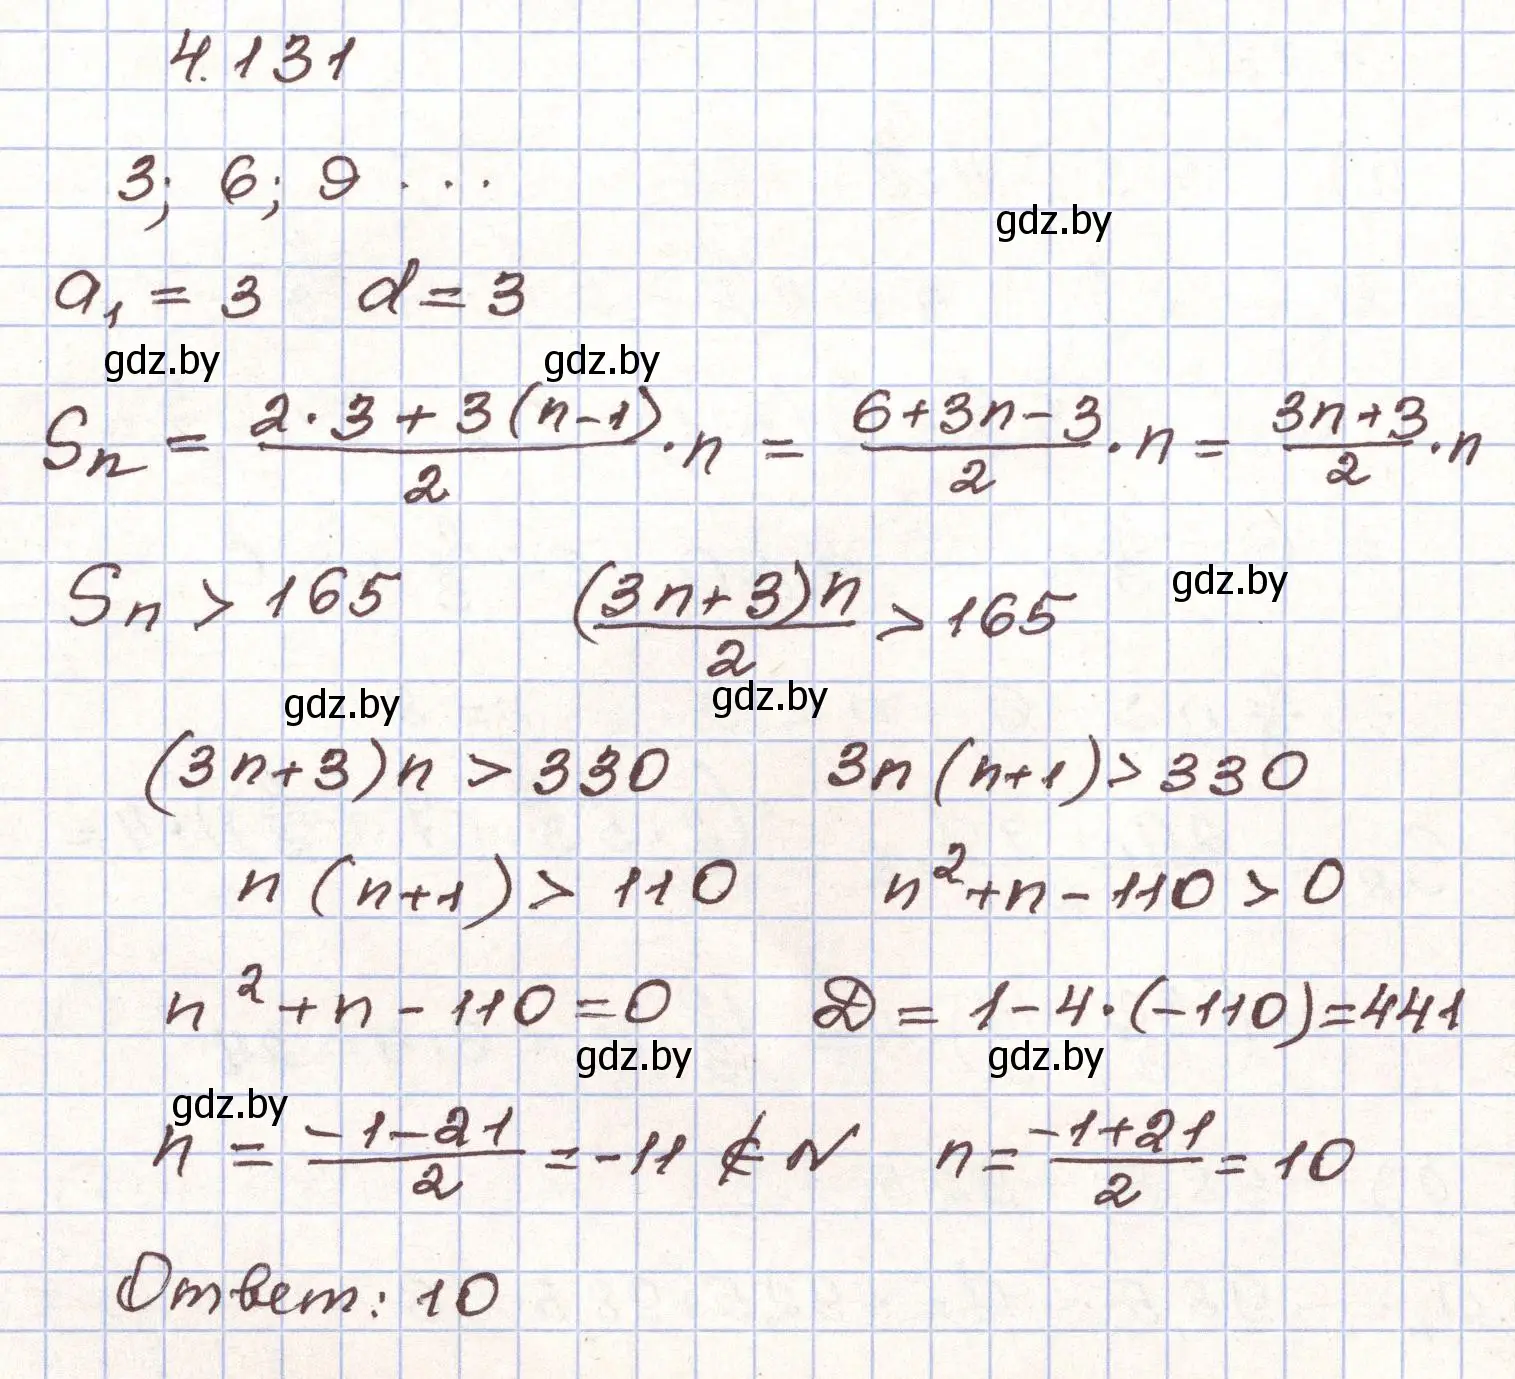 4.131
3; 6; 9 ...
gdz.by
a₁ = 3 d = 3
gdz.by gdz.by
Sₙ = (2·3+3(n-1))/2 · n = (6+3n-3)/2 · n = (3n+3)/2 · n
Sₙ > 165 ((3n+3)n)/2 > 165
gdz.by
gdz.by gdz.by
(3n+3)n > 330 3n(n+1) > 330
n(n+1) > 110 n²+n-110 > 0
n²+n-110=0 D = 1-4·(-110)=441
gdz.by gdz.by
gdz.by
n = (-1-21)/2 = -11 ∉ N n = (-1+21)/2 = 10
Ответ: 10